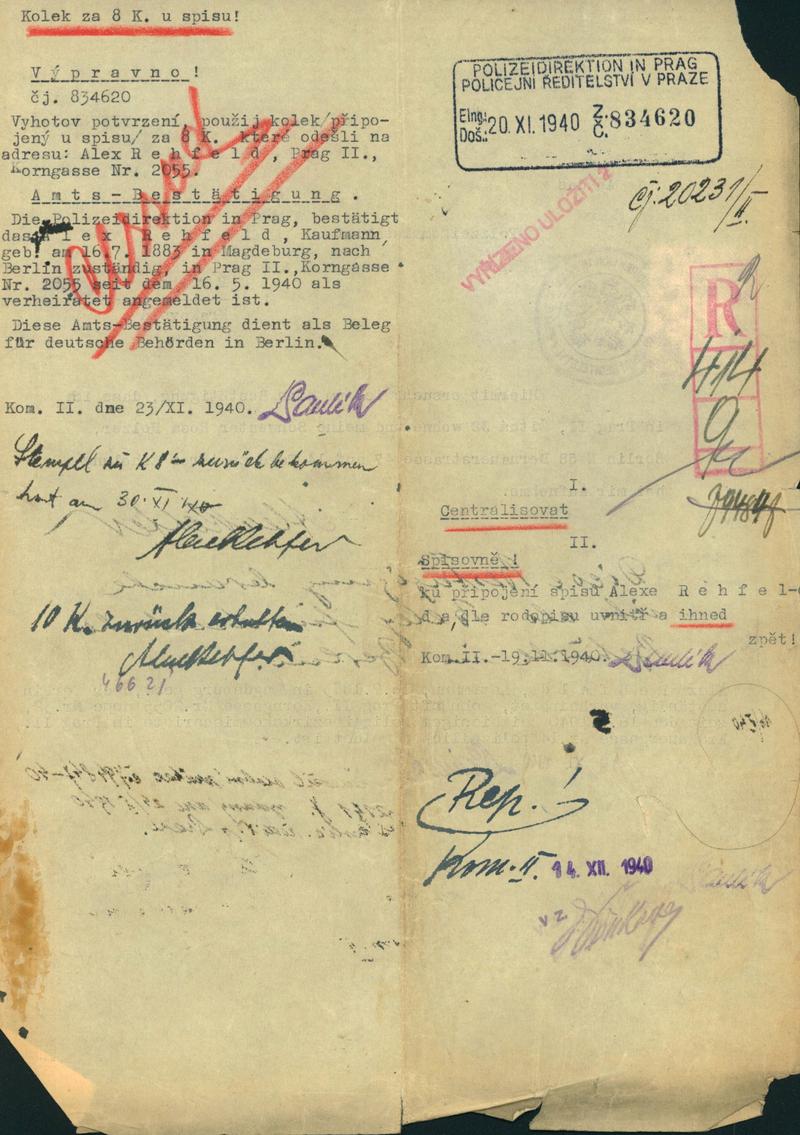 Kolek za 8 K. u spisu!
Výpravno!
čj. 834620
Vyhotov potvrzení, použij kolek/připo-
jený u spisu/ za 8 K. které odešli na
adresu: Alex Rehfeld, Prag II.,
Korngasse Nr. 2055.
Amts-Bestätigung.
Die Polizeidirektion in Prag, bestätigt
dass Alex Rehfeld, Kaufmann
geb. am 16.7. 1883 in Magdeburg, nach
Berlin zuständig, in Prag II.,Korngasse
Nr. 2055 seit dem 16. 5. 1940 als
verheiratet angemeldet ist.
Diese Amts-Bestätigung dient als Beleg
für deutsche Behörden in Berlin.
Kom. II. dne 23/XI. 1940.
Stempel zu K 8'- zurück bekommen
am 30. XI
10 K. zurück erhalten
46621
POLIZEIDIREKTION IN PRAG
POLICEJNÍ ŘEDITELSTVÍ V PRAZE
Eing.:
Doš.: 20. XI. 1940 Z. Č. 834620
čj. 20231/II.
VYŘÍZENO ULOŽITI
R
414
9
I.
Centrálisovat
II.
Spisovně!
ku připojení spisů Alexe Rehfel-
da, dle rodopisu uvnitř a ihned
zpět!
Kom.II.-19.11.1940.
Rep.!
Kom. II. 14. XII. 1940
v z.